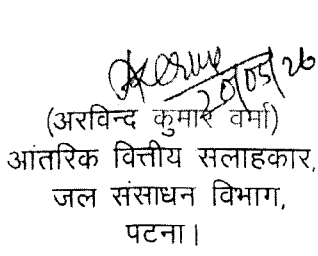 20/05/26
(अरविन्द कुमार वर्मा)
आंतरिक वित्तीय सलाहकार,
जल संसाधन विभाग,
पटना।